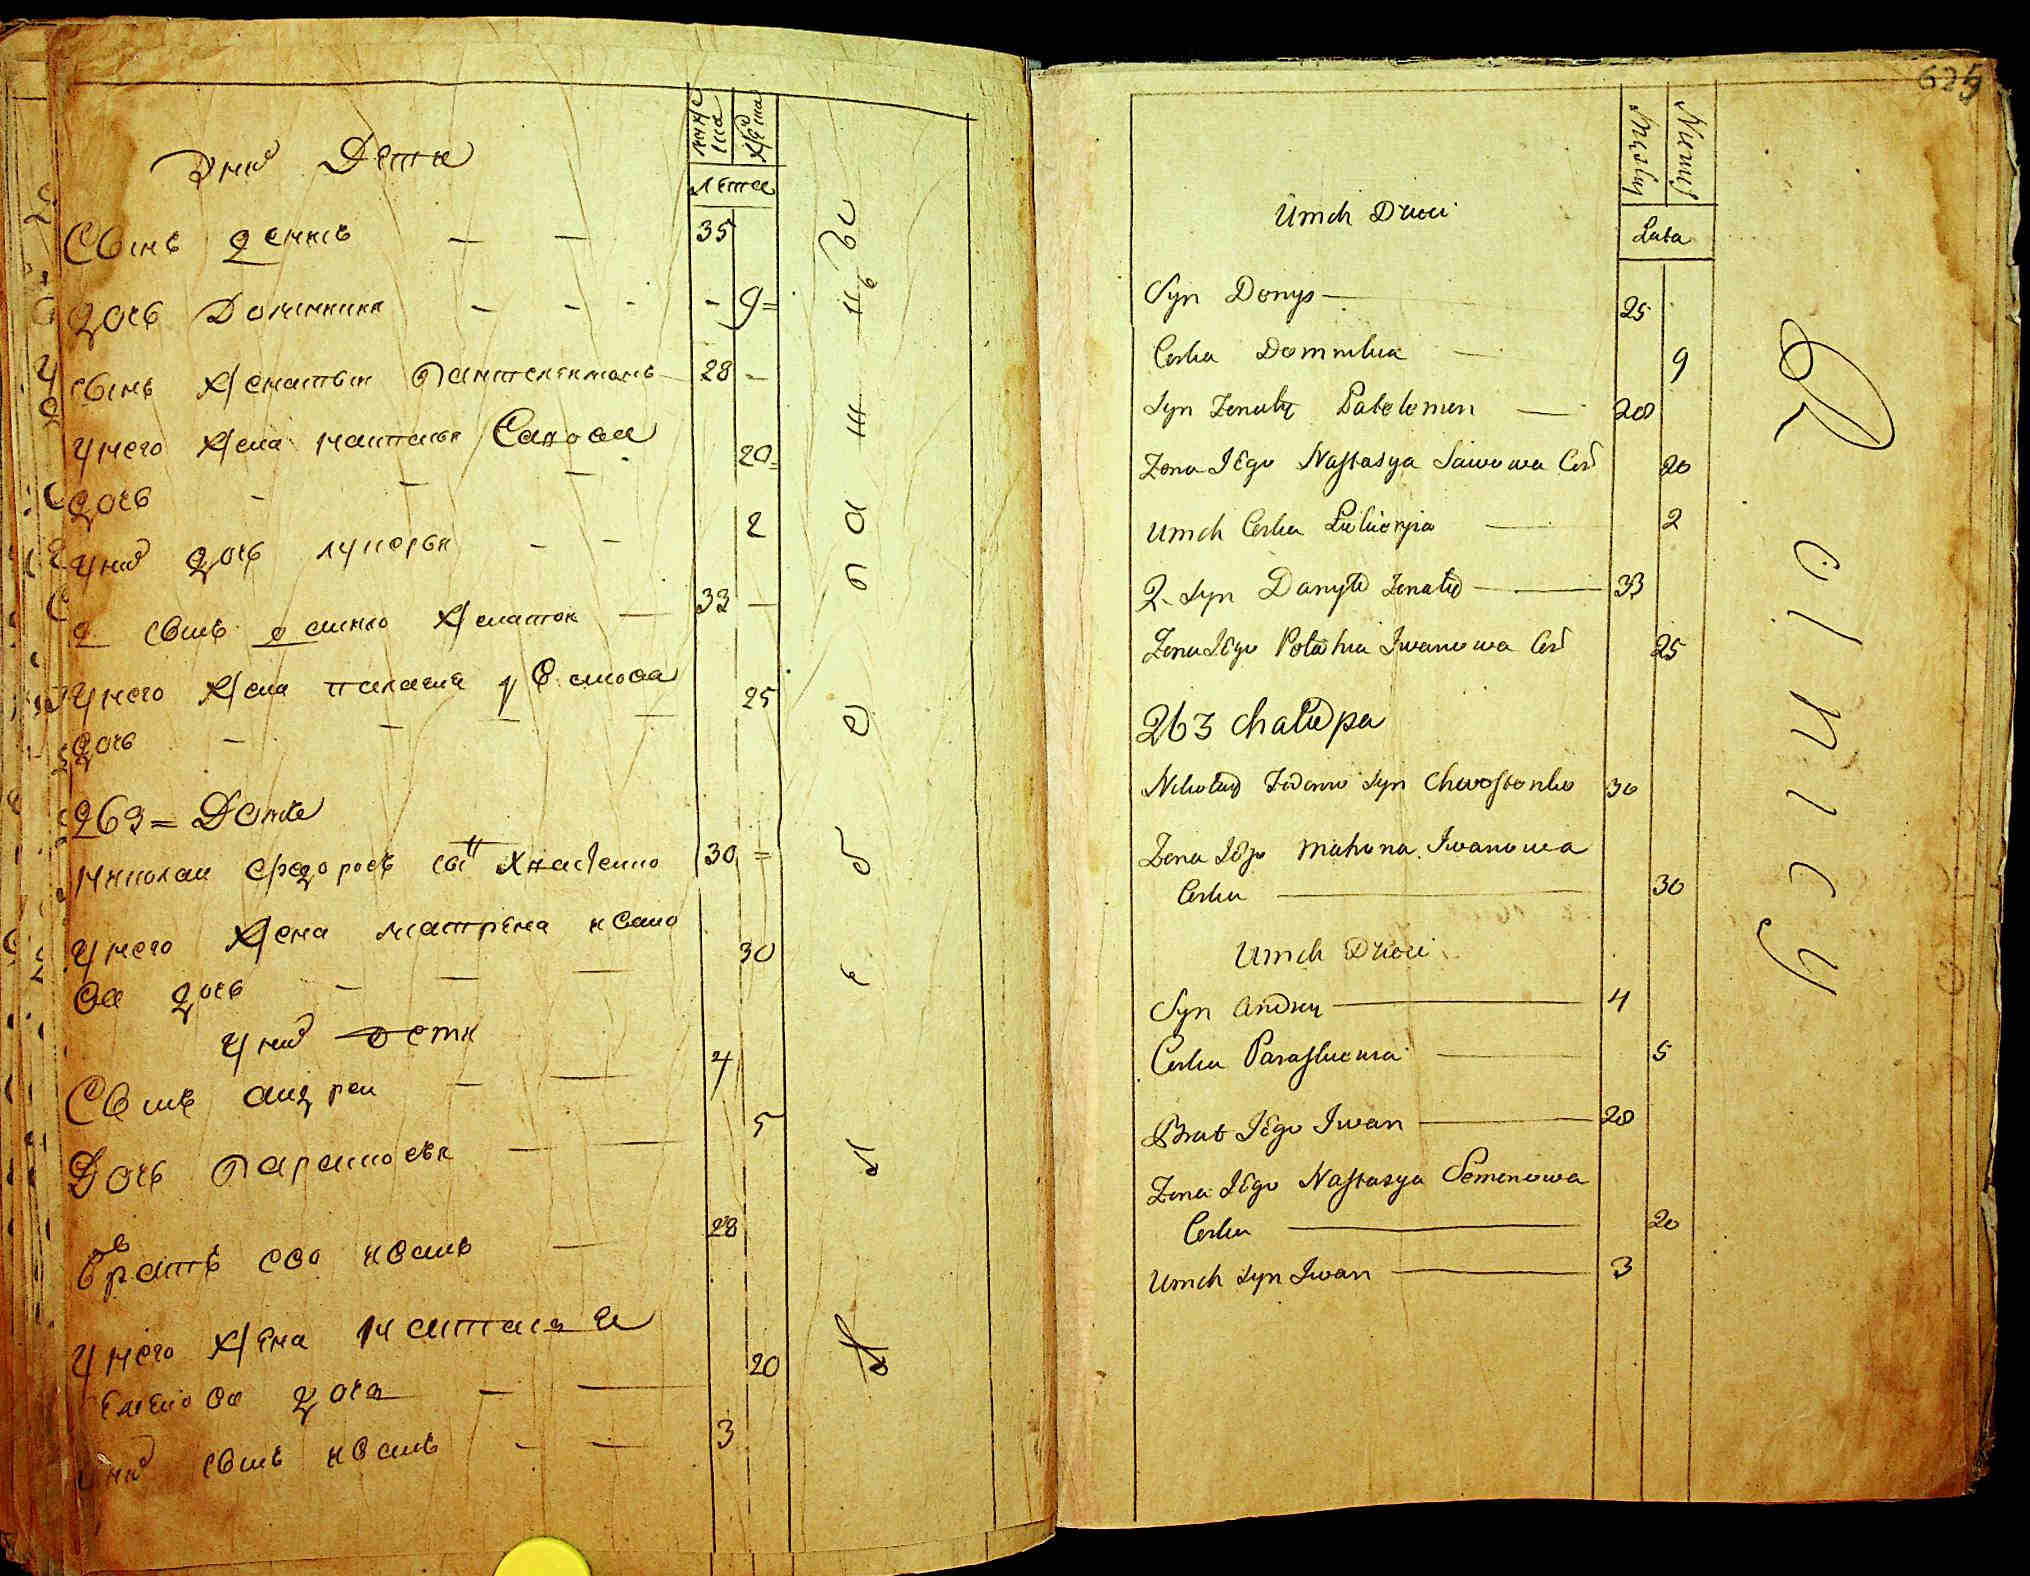 У них Дети
мужеска
женска
лета
Сынъ Денисъ — — 35
дочь Доминика — — - - 9=
сынъ женатыи Пантелеимонъ 28 —
у него жена настасья Савова
дочь — — — 20=
у них дочь лукерья — — 2
2 сынъ данило женатои — 33 —
у него жена пелагия Иванова
дочь — — — — 25
263= Дом
николаи федоровъ сын Хвастенко 30 =
у него жена матрена ивано
ва дочь — — — 30
у них дети
Сынъ андреи — — 4
Дочь Парасковья — — 5
братъ ево иванъ — 28
у него жена настасья
семенова дочь — — 20
у них сынъ иванъ — — 3
625
Męskij
Niewij
Lata
Umch Dzieci
Syn Denys — 25
Corka Domnikia — 9
Syn Zonaty Patelemon — 28
Zona Iego Nastasya Sawowa Cor 20
Umch Corka Lukieryia — 2
2. Syn Danyło Zonaty — 33
Zona Iego Połahia Iwanowa Cor 25
263 chałupa
Nikołay Fedorow Syn Chwostenko 30
Zona Iego Mahrona Iwanowa
Corka — 30
Umch Dzieci
Syn Andrey — 4
Corka Paraskiewia — 5
Brat Iego Iwan — 28
Zona Iego Nastasya Semenowa
Corka — 20
Umch Syn Iwan — 3
Rolnicy